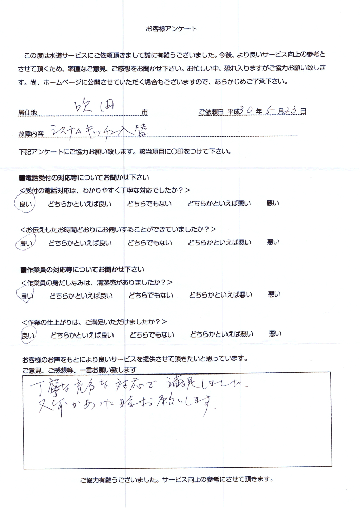 お客様アンケート
この度は水道サービスにご依頼頂きまして誠に有難うございました。今後、より良いサービス向上の参考と
させて頂くため、率直なご意見、ご感想をお聞かせ下さい。お忙しい中、恐れ入りますがご協力お願い致しま
す。尚、ホームページに公開させていただく場合もございますので、あらかじめご了承下さい。
居住地 吹田 市 ご依頼日 平成30年 月 日
故障内容 システムキッチン入替
下記アンケートにご協力お願い致します。該当項目に○印をつけて下さい。
■電話受付の対応等についてお聞かせ下さい
<受付の電話対応は、わかりやすく丁寧な対応でしたか？>
良い どちらかといえば良い どちらでもない どちらかといえば悪い 悪い
<お伝えしたお時間どおりにお伺いすることができていましたか？>
良い どちらかといえば良い どちらでもない どちらかといえば悪い 悪い
■作業員の対応等についてお聞かせ下さい
<作業員の身だしなみは、清潔感がありましたか？>
良い どちらかといえば良い どちらでもない どちらかといえば悪い 悪い
<作業の仕上がりは、ご満足いただけましたか？>
良い どちらかといえば良い どちらでもない どちらかといえば悪い 悪い
お客様のお声をもとにより良いサービスを提供させて頂きたいと思っています。
ご意見、ご感想等、一言お願い致します
丁寧な 対応で 満足しました。
又何かあった時はお願いします。
ご協力有難うございました。サービス向上の参考にさせて頂きます。